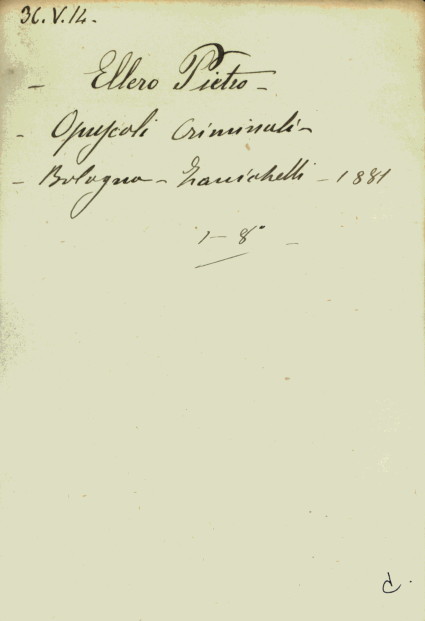 36.V.14.
- Ellero Pietro -
- Opuscoli Criminali -
- Bologna - Zanichelli - 1881
1 - 8° -
C.